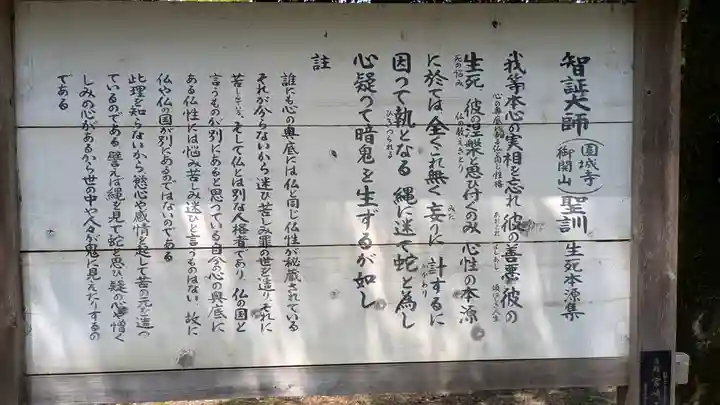 智証大師(園城寺御開山)聖訓 生死本源集
我等本心の実相を忘れ 彼の善悪 彼の
心の奥底 仏と同じ性格
生死 彼の涅槃と思ひ付くのみ 心性の本源
死の悩み 仏の教え さとり
に於ては全くこれ無く妄りに計するに
みだ はかり
因って執となる 縄に迷て蛇と為し
ひきつけられる
心疑って暗鬼を生ずるが如し
註
誰にも心の奥底には仏と同じ仏性が秘蔵されている
それが分らないから迷ひ 苦しみ罪の世を造り
苦しむ そして仏とは別な人格者であり 仏の国と
言うものが別にあると思っている 自分の心の奥底に
ある仏性には悩み苦しみ迷ひと言うものはない 故に
仏や仏の国が別にあるのではないのである
此理を知らないから 慾心や感情を起して苦の元を造っ
ているのである 譬えば縄を見て蛇と思ひ 疑の心や憎く
しみの心があるから世の中や人々が鬼に見えたりするの
である